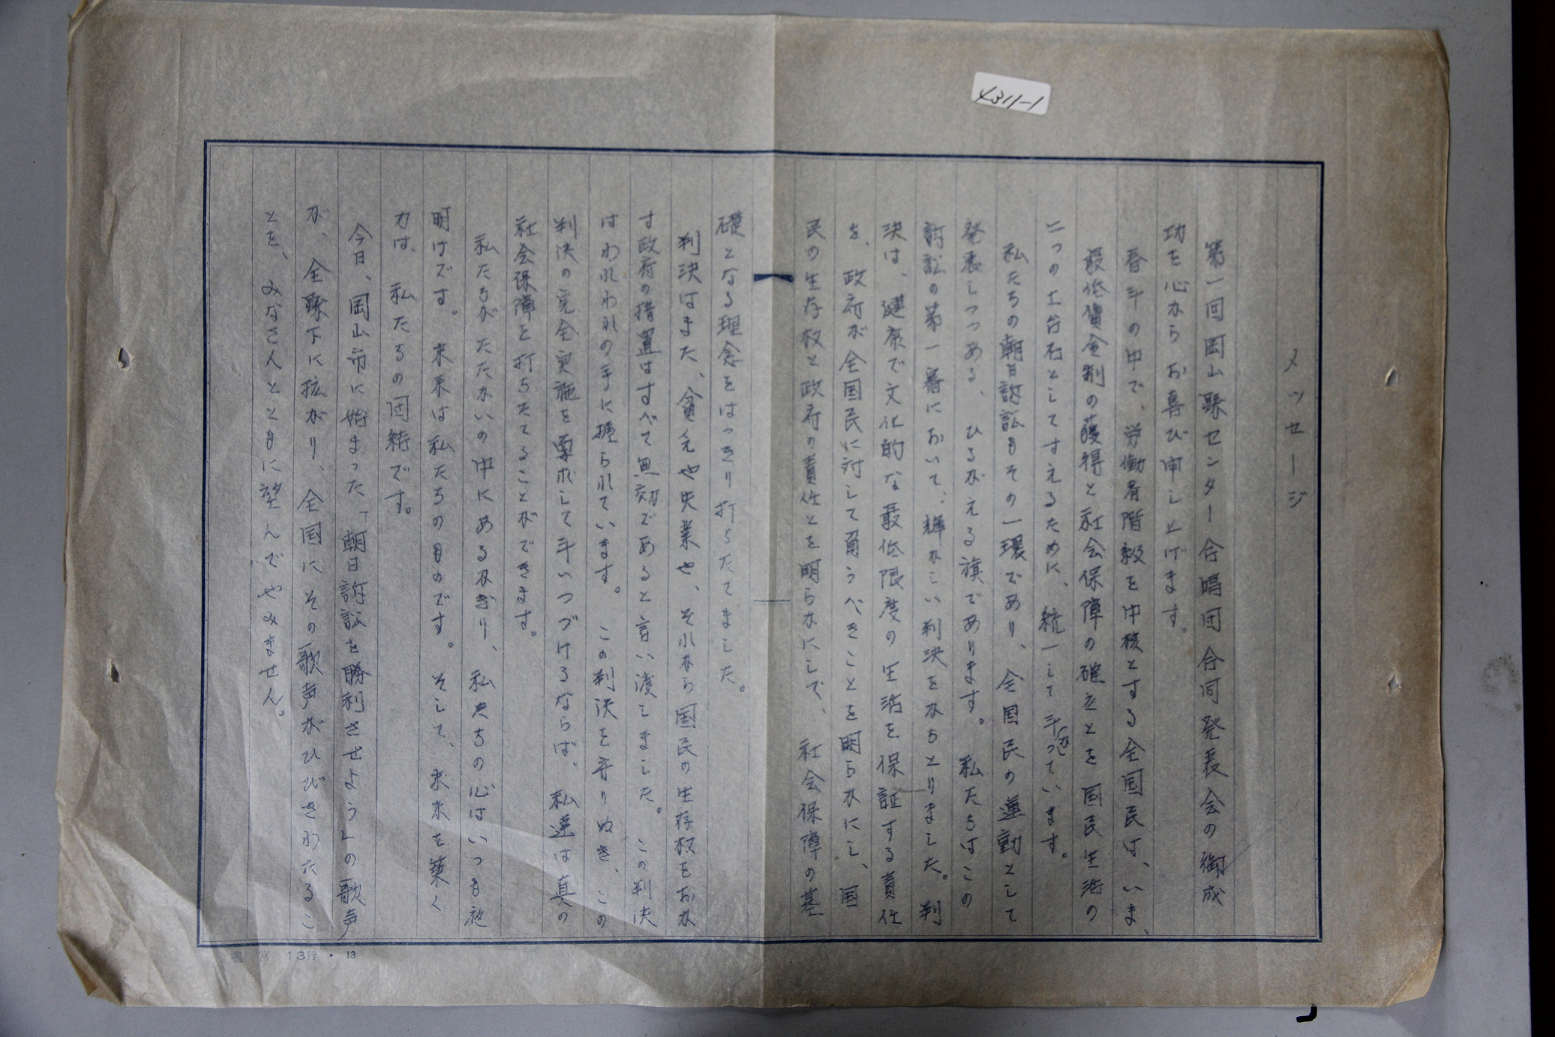 メッセージ
第一回岡山県センター合唱団合同発表会の御成
功を心からお喜び申し上げます。
春斗の中で、労働者階級を中核とする全国民は、いま、
最低賃金制の獲得と社会保障の確立とを国民生活の
二つの土台石としてすえるために、統一して斗っています。
私たちの朝日訴訟もその一環であり、全国民の運動として
発展しつつある、ひるがえる旗であります。私たちはこの
訴訟の第一審において、輝かしい判決をかちとりました。判
決は、健康で文化的な最低限度の生活を保証する責任
を、政府が全国民に対して負うべきことを明らかにし、国
民の生存権と政府の責任とを明らかにして、社会保障の基
礎となる理念をはっきり打ちたてました。
判決はまた、貧乏や失業や、それから国民の生存権をおか
す政府の措置はすべて無効であると言い渡しました。この判決
はわれわれの手に握られています。この判決を守りぬき、この
判決の完全実施を要求して斗いつづけるならば、私達は真の
社会保障を打ちたてることができます。
私たちがたたかいの中にあるかぎり、私たちの心はいつも夜
明けです。未来は私たちのものです。そして、未来を築く
力は、私たちの団結です。
今日、岡山市に始まった「朝日訴訟を勝利させよう」の歌声
が、全県下に拡がり、全国にその歌声がひびきわたるこ
とを、みなさんとともに望んでやみません。
13行・13